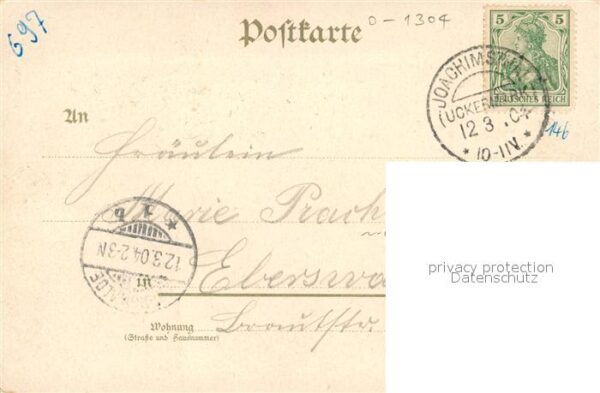 697
Postkarte
0-1304
5 5
DEUTSCHES REICH
JOACHIMSTHAL
(UCKERM
12 3 04
* 10-11V. *
146
An
Fräulein
Marie Prach
in Eberswa
Wohnung
(Straße und Hausnummer)
Brautstr.
* 1 b
12.3.04.2-3N
WALDE
privacy protection
Datenschutz